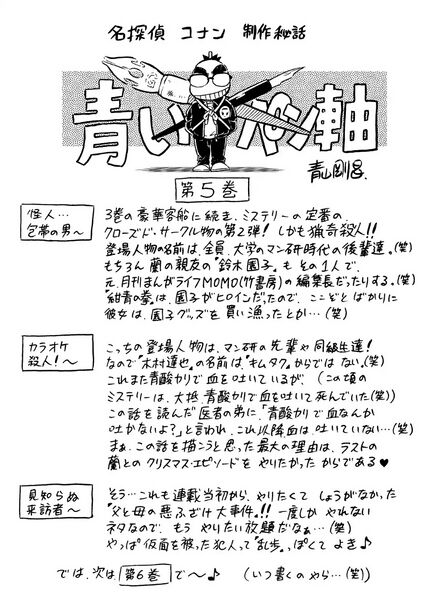 名探偵 コナン 制作秘話
青い ペン軸
青山剛昌.
第5巻
怪人…
包帯の男〜
3巻の豪華客船に続き、ミステリーの定番の
クローズド・サークル物の第2弾! しかも猟奇殺人!!
登場人物の名前は、全員、大学のマン研時代の後輩達。(笑)
もちろん 蘭の親友の“鈴木園子”も その1人で、
元、月刊まんがライフMOMO(竹書房)の編集長だったりする。(笑)
“紺青の拳”は、園子がヒロインだったので、ここぞとばかりに
彼女は、園子グッズを買い漁ったとか…(笑)
カラオケ
殺人!〜
こっちの登場人物は、マン研の先輩や同級生達!
なので“木村達也”の名前は“キムタク”からではない。(笑)
これまた青酸カリで血を吐いているが、(この頃の
ミステリーは、大抵、青酸カリで血を吐いて死んでいた(笑))
この話を読んだ医者の弟に、「青酸カリで血なんか
吐かないよ?」と言われ、これ以降、血は吐いていない…(笑)
まぁ、この話を描こうと思った最大の理由は、ラストの
蘭とのクリスマス・エピソードをやりたかったからである♥
見知らぬ
来訪者〜
そう…これも連載当初から、やりたくて しょうがなかった
“父と母の悪ふざけ大事件”!! 一度しかやれない
ネタなので、もう やりたい放題だなぁ…(笑)
やっぱ仮面を被った犯人って“乱歩”っぽくて よき♪
では、次は、第6巻で〜♪ (いつ書くのやら…(笑))